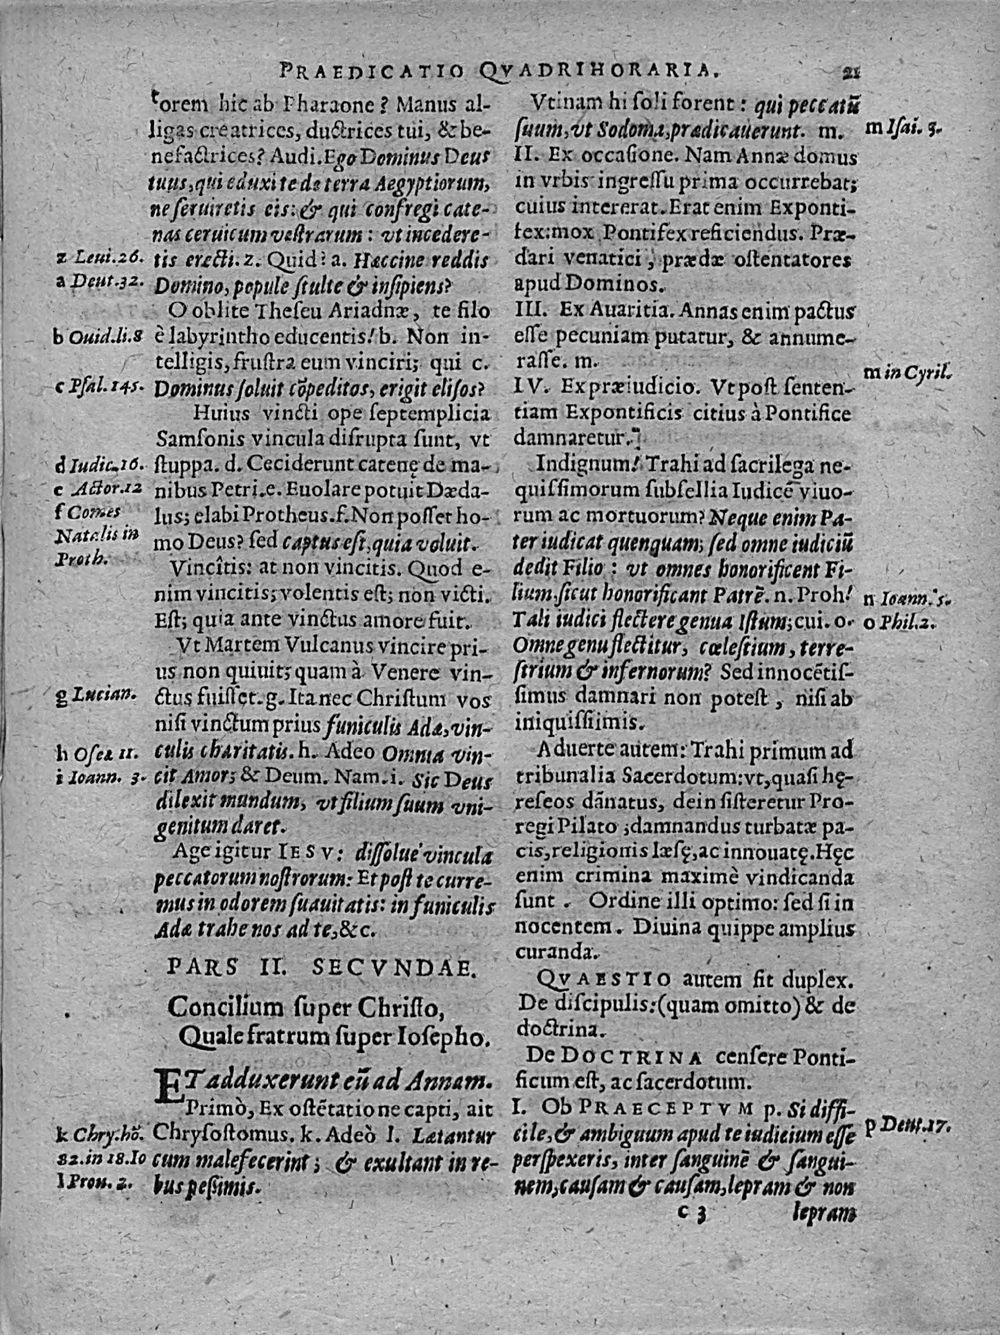 PRAEDICATIO QVADRIHORARIA. 21
torem hic ab Pharaone? Manus al-
ligas creatrices, ductrices tui, & be-
nefactrices? Audi. Ego Dominus Deus
tuus, qui eduxi te de terra Aegyptiorum,
ne seruiretis eis: & qui confregi cate-
nas ceruicum vestrarum: vt incedere-
z Leui. 26. tis erecti. z. Quid? a. Hæccine reddis
a Deut. 32. Domino, popule stulte & insipiens?
O oblite Theseu Ariadnæ, te filo
b Ouid. li. 8 è labyrintho educentis! b. Non in-
telligis, frustra eum vinciri; qui c.
c Psal. 145. Dominus soluit cōpeditos, erigit elisos?
Huius vincti ope septemplicia
Samsonis vincula disrupta sunt, vt
d Iudic. 16. stuppa. d. Ceciderunt catenę de ma-
e Actor. 12 nibus Petri. e. Euolare potuit Dæda-
f Comes lus; elabi Protheus. f. Non posset ho-
Natalis in mo Deus? sed captus est, quia voluit.
Proth.
Vincîtis: at non vincitis. Quod e-
nim vincitis; volentis est; non victi.
Est; quia ante vinctus amore fuit.
Vt Martem Vulcanus vincire pri-
us non quiuit; quam à Venere vin-
g Lucian. ctus fuisset. g. Ita nec Christum vos
nisi vinctum prius funiculis Adæ, vin-
h Oseæ 11. culis charitatis. h. Adeo Omnia vin-
i Ioann. 3. cit Amor; & Deum. Nam. i. Sic Deus
dilexit mundum, vt filium suum vni-
genitum daret.
Age igitur IESV: dissolue vincula
peccatorum nostrorum: Et post te curre-
mus in odorem suauitatis: in funiculis
Adæ trahe nos ad te, &c.
PARS II. SECVNDAE.
Concilium super Christo,
Quale fratrum super Iosepho.
ET adduxerunt eū ad Annam.
Primò, Ex ostētatione capti, ait
k Chry. hō. Chrysostomus. k. Adeò l. Lætantur
82. in 18. Io cum malefecerint; & exultant in re-
l Prou. 2. bus pessimis.
Vtinam hi soli forent: qui peccatū
suum, vt Sodoma, prædicauerunt. m. m Isai. 3.
II. Ex occasione. Nam Annæ domus
in vrbis ingressu prima occurrebat;
cuius intererat. Erat enim Exponti-
fex: mox Pontifex reficiendus. Præ-
dari venatici, prædæ ostentatores
apud Dominos.
III. Ex Auaritia. Annas enim pactus
esse pecuniam putatur, & annume-
rasse. m. m in Cyril.
IV. Ex præiudicio. Vt post senten-
tiam Expontificis citius à Pontifice
damnaretur.
Indignum! Trahi ad sacrilega ne-
quissimorum subsellia Iudicē viuo-
rum ac mortuorum? Neque enim Pa-
ter iudicat quenquam; sed omne iudiciū
dedit Filio: vt omnes honorificent Fi-
lium, sicut honorificant Patrē. n. Proh! n Ioann. 5.
Tali iudici flectere genua Istum; cui. o. o Phil. 2.
Omne genu flectitur, cœlestium, terre-
strium & infernorum? Sed innocētis-
simus damnari non potest, nisi ab
iniquissimis.
Aduerte autem: Trahi primum ad
tribunalia Sacerdotum: vt, quasi hę-
reseos dānatus, dein sisteretur Pro-
regi Pilato; damnandus turbatæ pa-
cis, religionis læsę, ac innouatę. Hęc
enim crimina maximè vindicanda
sunt. Ordine illi optimo: sed si in
nocentem. Diuina quippe amplius
curanda.
QVAESTIO autem fit duplex.
De discipulis: (quam omitto) & de
doctrina.
De DOCTRINA censere Ponti-
ficum est, ac sacerdotum.
I. Ob PRAECEPTVM p. Si diffi-
cile, & ambiguum apud te iudicium esse p Deut. 17.
perspexeris, inter sanguinē & sangui-
nem, causam & causam, lepram & non
c 3 lepram